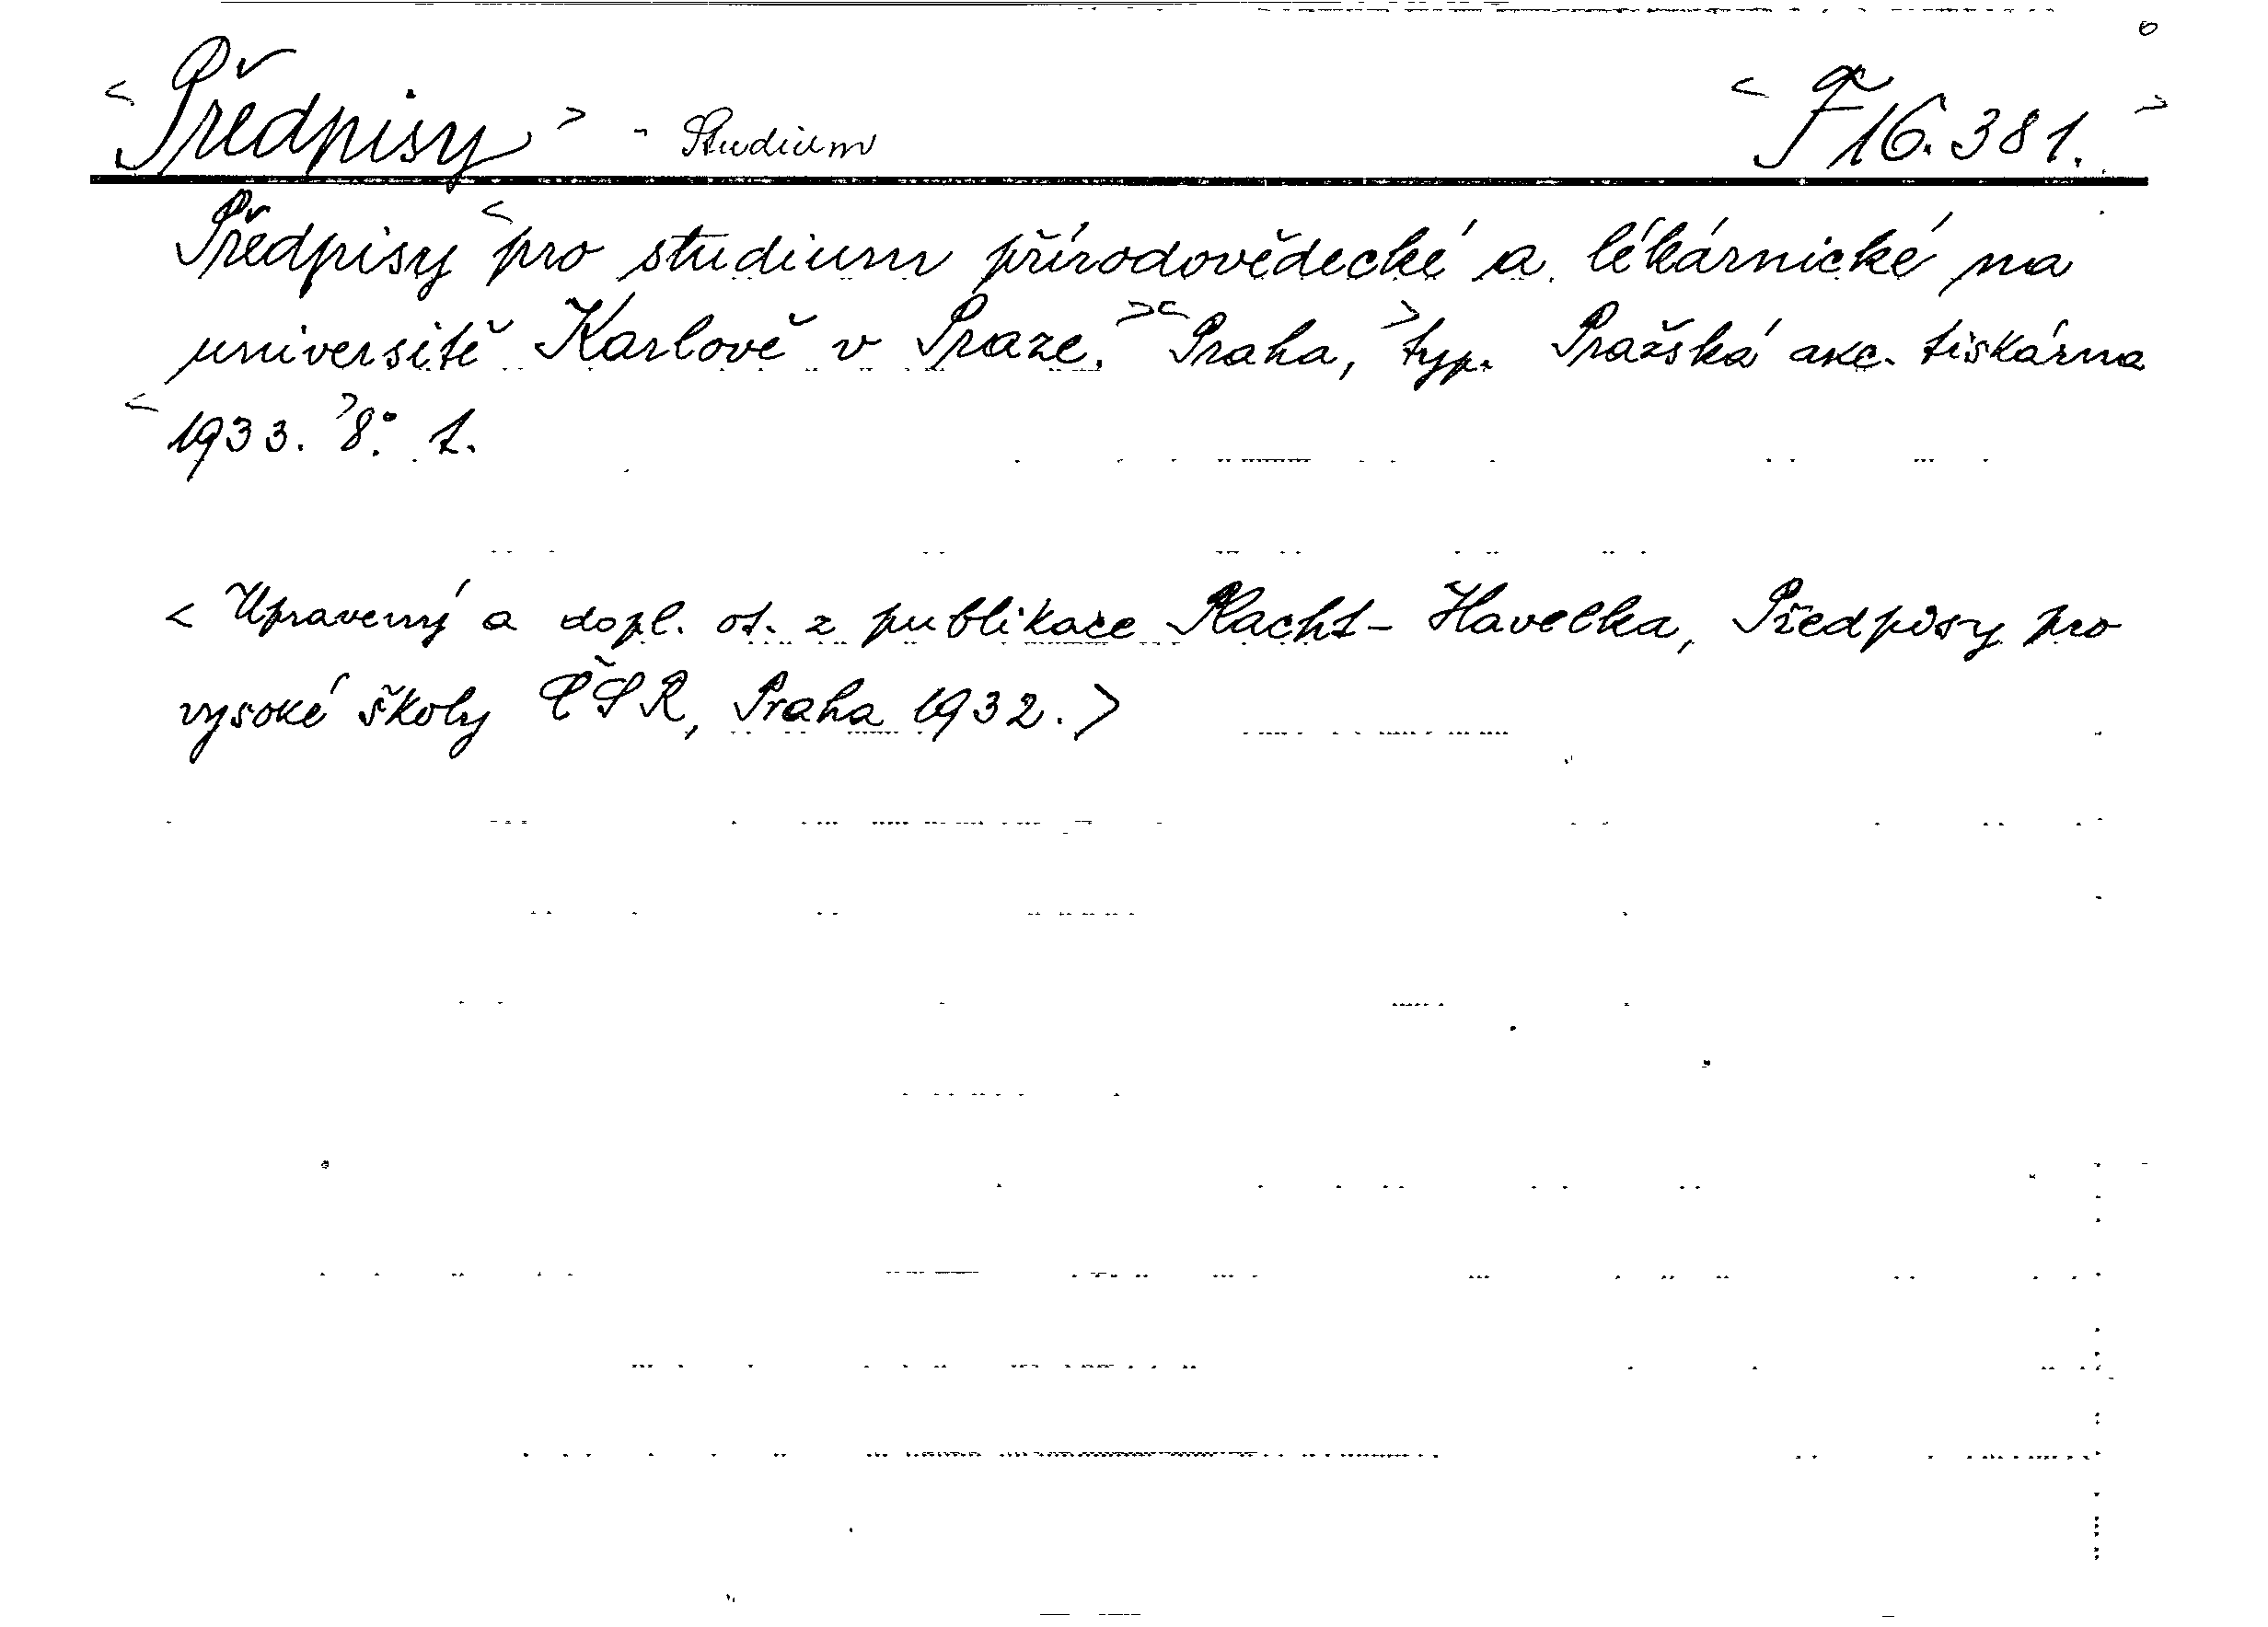 <Předpisy> - Studium <F 16.381.>
Předpisy <pro studium přírodovědecké a lékárnické na
universitě Karlově v Praze.> <Praha,> typ. Pražská akc. tiskárna
<1933.> 8°. t.
<Upravený a dopl. ot. z publikace Placht - Havelka, Předpisy pro
vysoké školy ČSR, Praha 1932.>